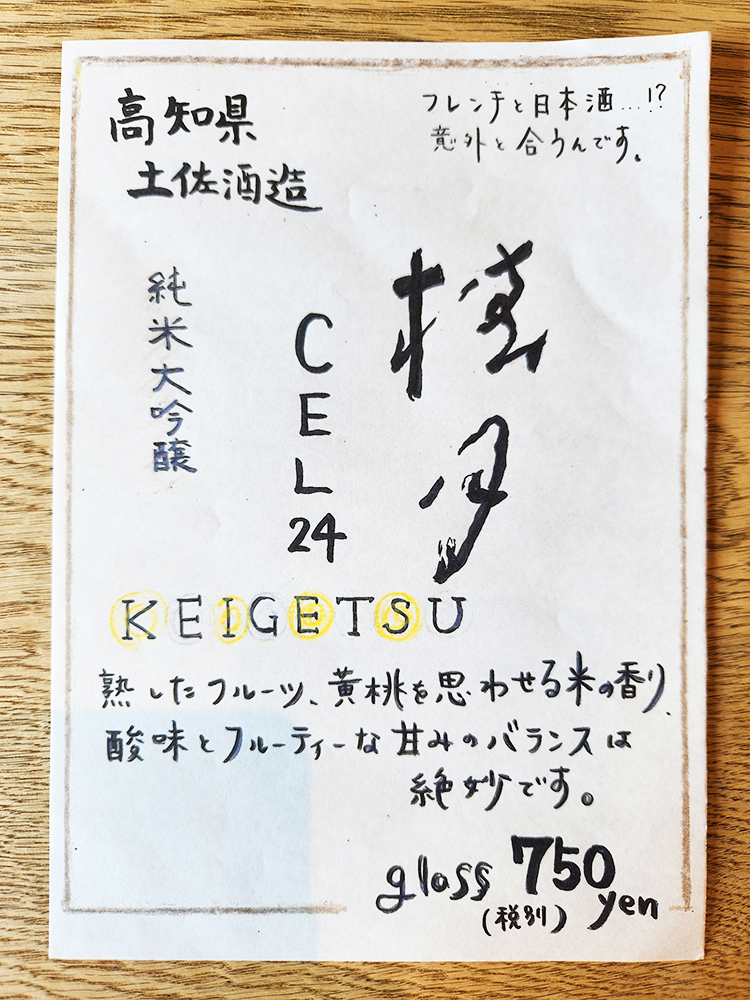 高知県
土佐酒造
フレンチと日本酒...!?
意外と合うんです。
桂月
CEL
24
純米大吟醸
KEIGETSU
熟したフルーツ、黄桃を思わせる米の香り、
酸味とフルーティーな甘みのバランスは
絶妙です。
glass 750 yen
(税別)